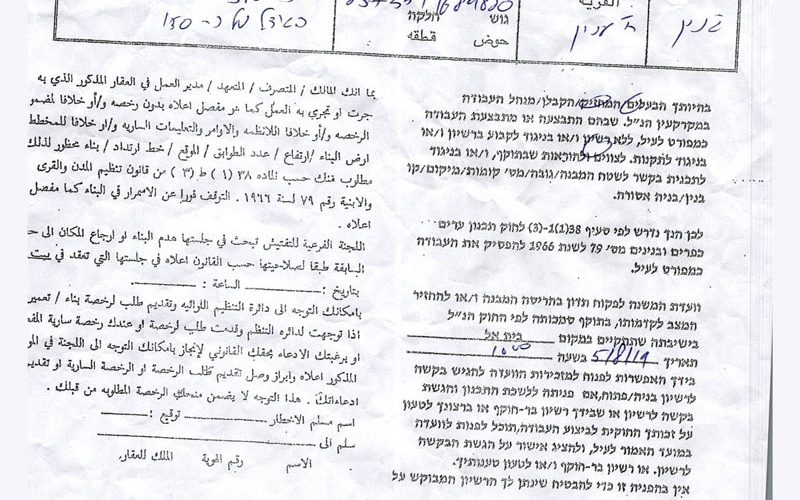 القرية
גוש חלקה
حوض قطعه
בהיותך הבעלים המחזיק/הקבלן/מנהל העבודה
במקרקעין הנ"ל. שבהם התבצעה או מתבצעת העבודה
כמפורט לעיל, ללא רשיון ו/או בניגוד לקבוע ברשיון ו/או
בניגוד לתקנות. לצווים ולהוראות שבתוקף, ו/או בניגוד
לתכנית בקשר לשטח המבנה/גובה/מס' קומות/מיקום/קו
בנין/בניה אסורה.
לכן הנך נדרש לפי סעיף 38(1)-(3) לחוק תכנון ערים
כפרים ובנינים מס' 79 לשנת 1966 להפסיק את העבודה
כמפורט לעיל.
וועדת המשנה לפקוח תדון בהריסת המבנה ו/או להחזיר
המצב לקדמותו, בתוקף סמכותה לפי החוק הנ"ל
בישיבתה שתתקיים במקום בית אל
תאריך 5/8/19 בשעה 10:00
בידך האפשרות לפנות למזכירות הוועדה להגיש בקשה
לרשיון בניה/פתוח, אם פנית ללשכת התכנון והגשת
בקשה לרשיון או שבידך רשיון בר-תוקף או ברצונך לטעון
על זכותך החוקית לביצוע העבודה, תוכל לפנות לוועדה
במועד האמור לעיל, ולהציג אישור על הגשת הבקשה
לרשיון. או רשיון בר-תוקף ו/או לטעון טענותיך.
אין בהפניה זו כדי להבטיח שינתן לך הרשיון המבוקש על
بما انك المالك / المتصرف / المتعهد / مدير العمل في العقار المذكور الذي به
جرت او تجري به العمل كما هو مفصل اعلاه بدون رخصه و/او خلافا لمضمو
الرخصه و/او خلافا للانظمه والاوامر والتعليمات الساريه و/او خلافا للمخطط
ارض البناء /ارتفاع / عدد الطوابق / الموقع / خط ارتداد / بناء محظور لذلك
مطلوب منك حسب الماده ٣٨ (١) ط (٣) من قانون تنظيم المدن والقرى
والابنية رقم ٧٩ لسنة ١٩٦٦. التوقف فورا عن الاستمرار في البناء كما مفصل
اللجنة الفرعية للتفتيش تبحث في جلستها هدم البناء او ارجاع المكان الى حـ
السابقة طبقا لصلاحيتها حسب القانون اعلاه في جلستها التي تعقد في بيت
بتاريخ: الساعة:
بامكانك التوجه الى دائرة التنظيم اللوائيه وتقديم طلب لرخصة بناء / تعمير
اذا توجهت لدائره التنظم وقدمت طلب لرخصة او عندك رخصة سارية المفـ
او برغبتك الادعاء بحقك القانوني لإنجاز بامكانك التوجه الى اللجنة في المو
المذكور اعلاه وابراز وصل تقديم طلب الرخصة او الرخصة السارية او تقديم
ادعاءاتك. هذا التوجه لا يضمن منحك الرخصة المطلوبه من قبلك.
اسم مسلم الاخطار توقيع:
سلم الى
الاسم رقم الهوية المالك للعقار.